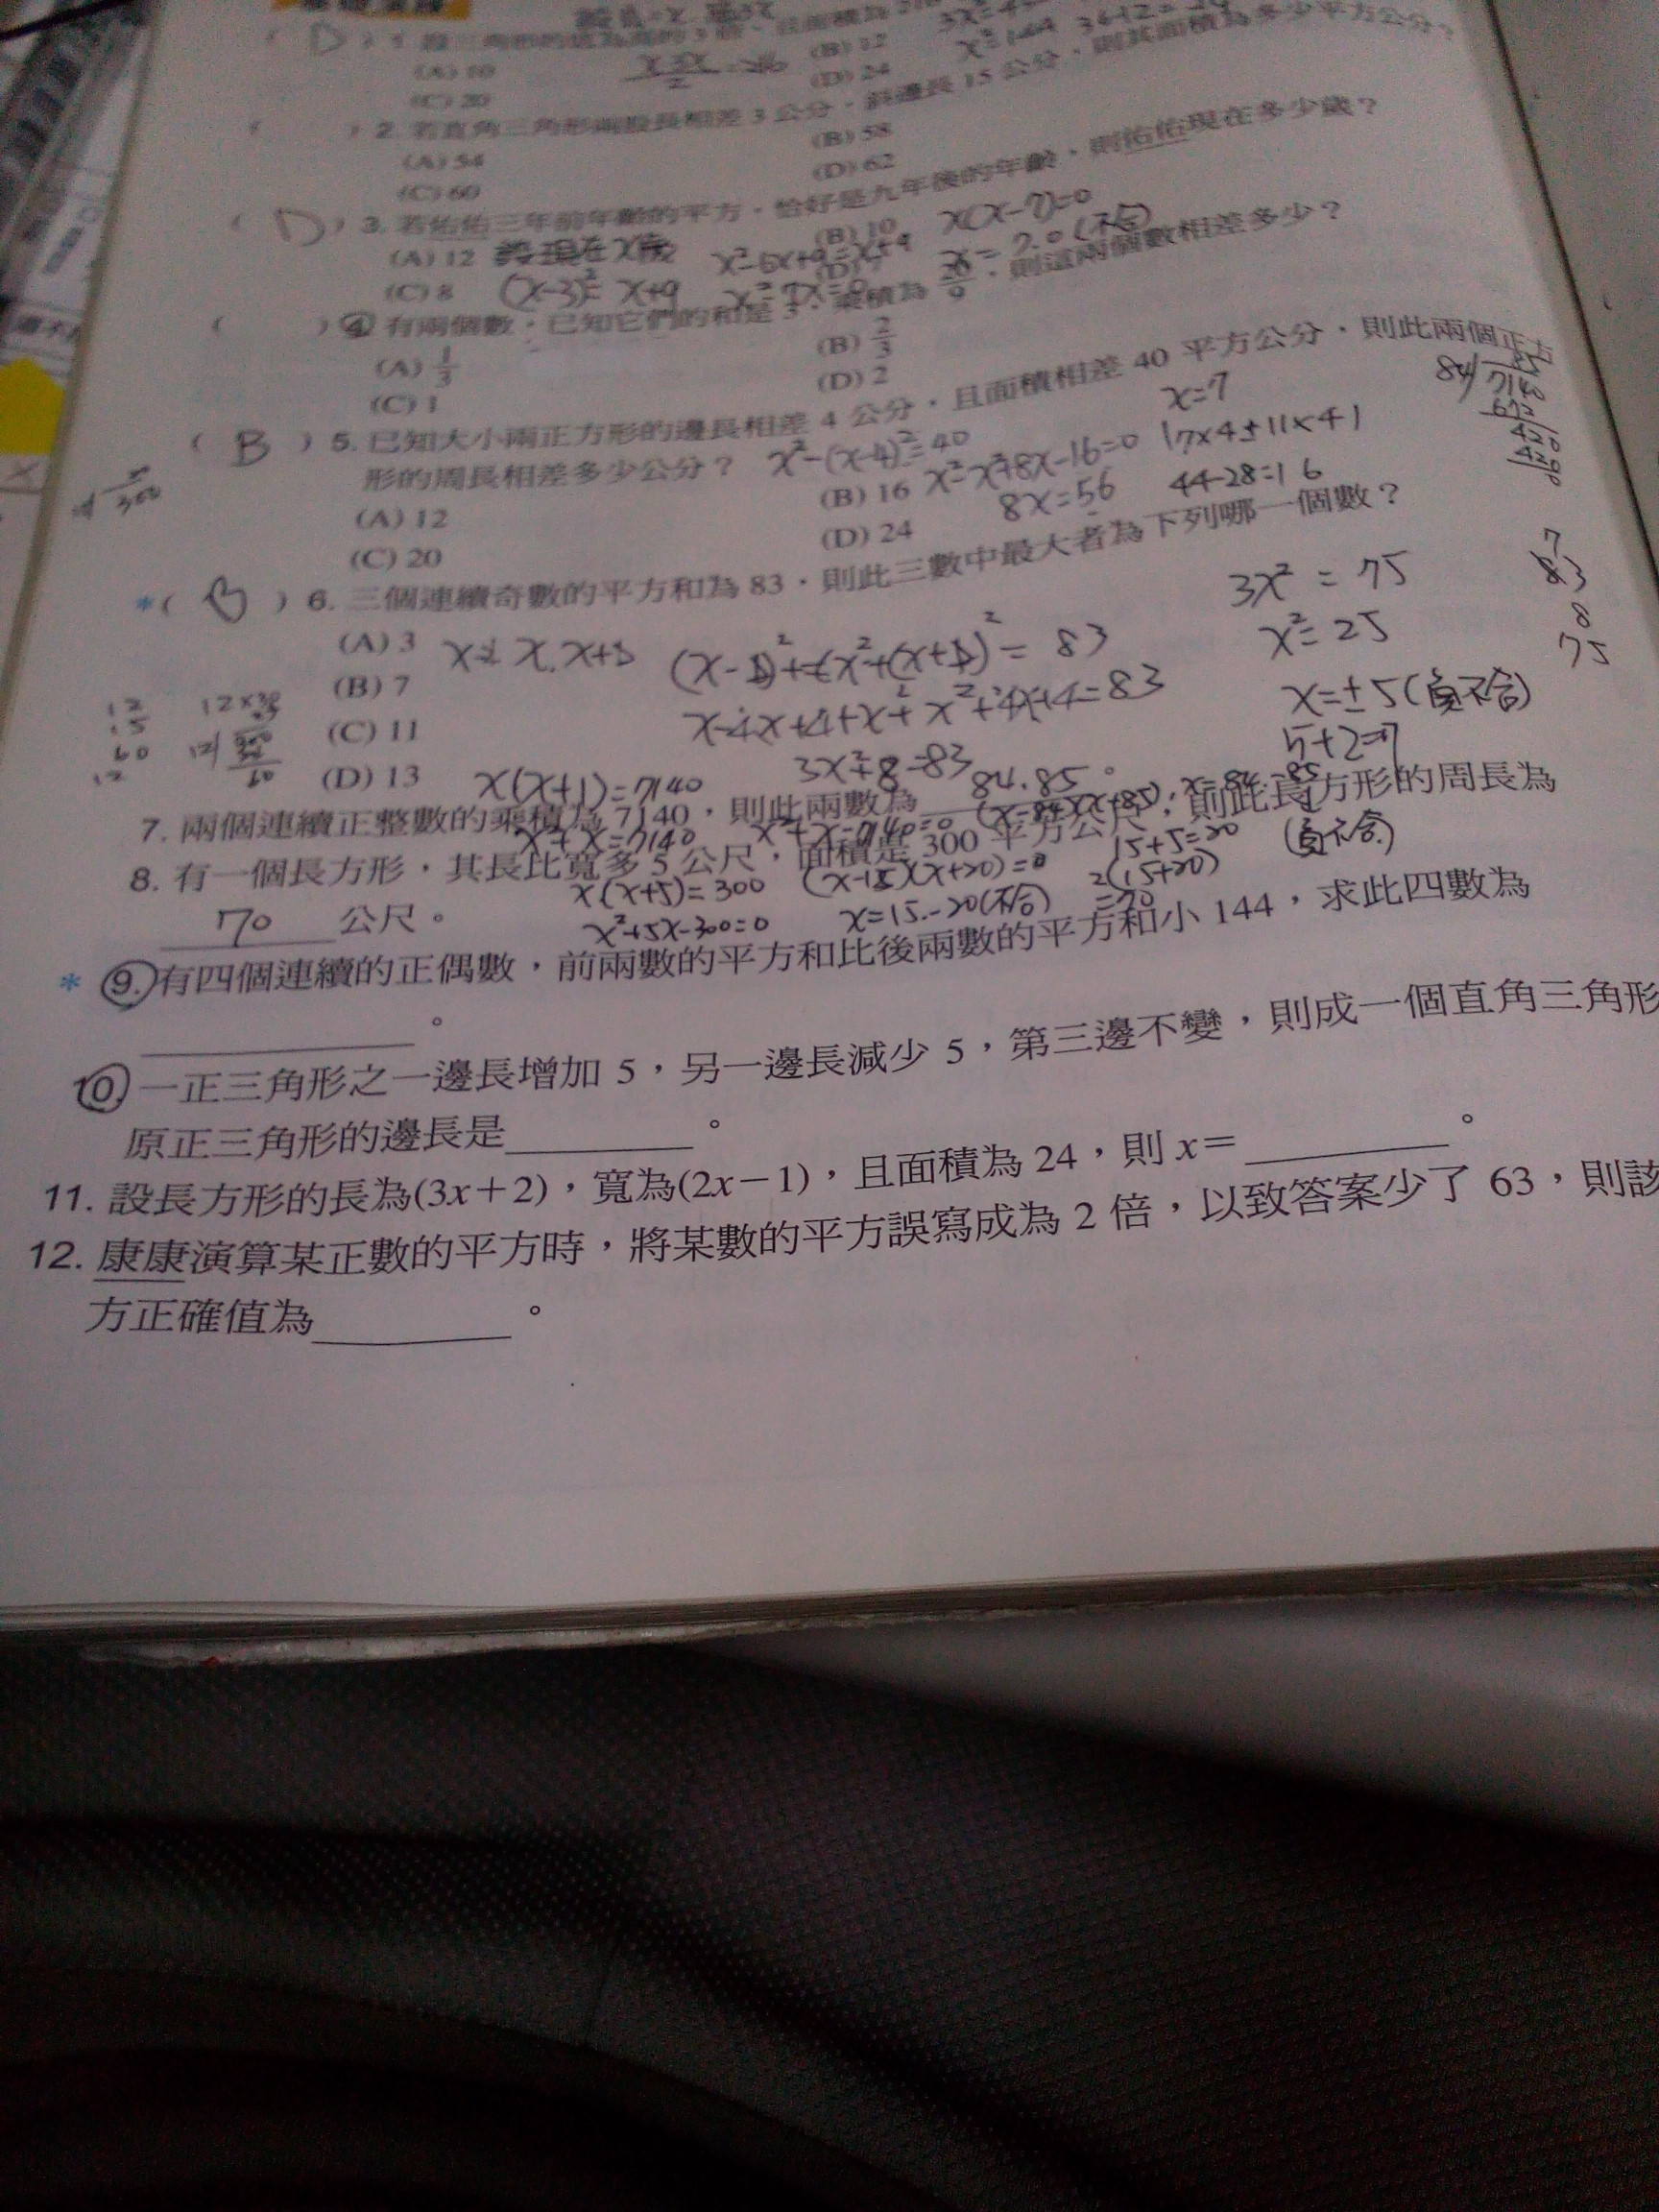 (A) 10
(B) 12
(C) 20
(D) 24
( ) 2. 若直角三角形兩股長相差 3 公分,斜邊長 15 公分,則其面積為多少平方公分?
(A) 54
(B) 58
(C) 60
(D) 62
( D ) 3. 若佑佑三年前年齡的平方,恰好是九年後的年齡,則佑佑現在多少歲?
(A) 12
(B) 10
x(x-7)=0
(C) 8
(D) 7
(x-3)²= x+9
x²-6x+9=x+9
x²-7x=0
x=7.0(不合)
( ) 4. 有兩個數,已知它們的和是 3,乘積為 20/9,則這兩個數相差多少?
(A) 1/3
(B) 2/3
(C) 1
(D) 2
( B ) 5. 已知大小兩正方形的邊長相差 4 公分,且面積相差 40 平方公分,則此兩個正方
形的周長相差多少公分?
x²-(x-4)²=40
x=7
(A) 12
(B) 16
x²-x²+8x-16=0
(C) 20
(D) 24
8x=56
44-28=16
*( B ) 6. 三個連續奇數的平方和為 83,則此三數中最大者為下列哪一個數?
(A) 3
(B) 7
(C) 11
(D) 13
3x²+8=83
3x² = 75
x²= 25
x=±5(負不合)
5+2=7
7. 兩個連續正整數的乘積為 7140,則此兩數為 84.85 。
x(x+1)=7140
x²+x=7140
x²+x-7140=0
(負不合)
8. 有一個長方形,其長比寬多 5 公尺,面積是 300 平方公尺,則此長方形的周長為
70 公尺。
x(x+5)=300
(x-15)(x+20)=0
15+5=20
2(15+20)
=70
x²+5x-300=0
x=15.-20(不合)
* 9. 有四個連續的正偶數,前兩數的平方和比後兩數的平方和小 144,求此四數為
。
10. 一正三角形之一邊長增加 5,另一邊長減少 5,第三邊不變,則成一個直角三角形
原正三角形的邊長是 。
11. 設長方形的長為(3x+2),寬為(2x-1),且面積為 24,則 x= 。
12. 康康演算某正數的平方時,將某數的平方誤寫成為 2 倍,以致答案少了 63,則該
方正確值為 。